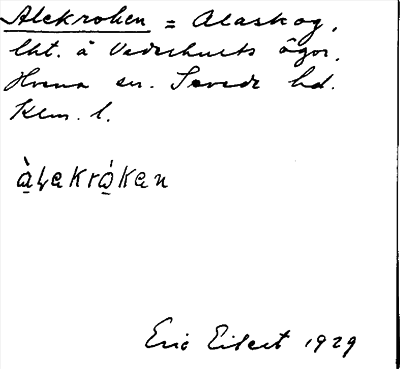 Alekroken = Alaskog,
lht. å Vederhults ägor.
Hvena sn. Sevede hd.
Klm. l.
àlekrókan
Eric Eifert 1929